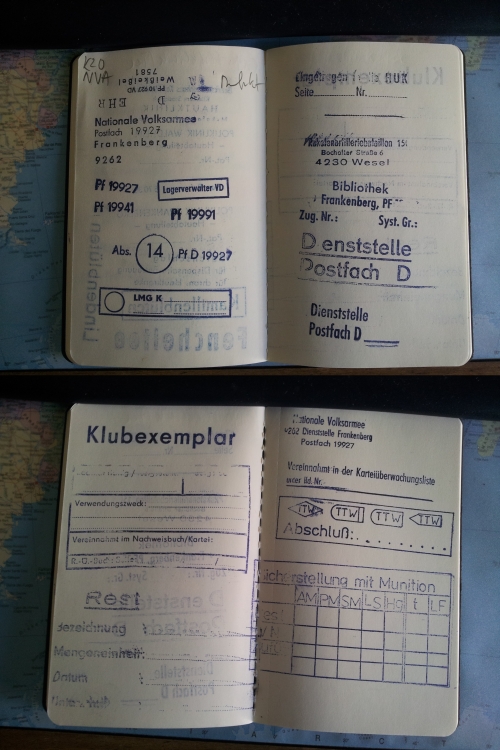 KZO
NVA
Weißkeißel
7581
PF 10927 VD
D EHB
Nationale Volksarmee
Postfach 19927
Frankenberg
9262
Pf 19927
Lagerverwalter-VD
Pf 19941
Pf 19991
Abs. 14 Pf D 19927
LMG K
Kamillenblüten
Lindenblüten
Fencheltee
Eingetragen
BUX
Seite Nr.
Bocholter Straße 6
4230 Wesel
Bibliothek
Frankenberg, PF
Zug. Nr.: Syst. Gr.:
Dienststelle
Postfach D
Dienststelle
Postfach D
Klubexemplar
Verwendungszweck:
Vereinnahmt im Nachweisbuch/Kartei:
Rest
Bezeichnung :
Mengeneinheit:
Datum :
Nationale Volksarmee
9262 Dienststelle Frankenberg
Postfach 19927
Vereinnahmt in der Karteiüberwachungsliste
unter lfd. Nr.
TTW TTW TTW TTW
Abschluß:
Sicherstellung mit Munition
AM PM SM LS Hg t LF